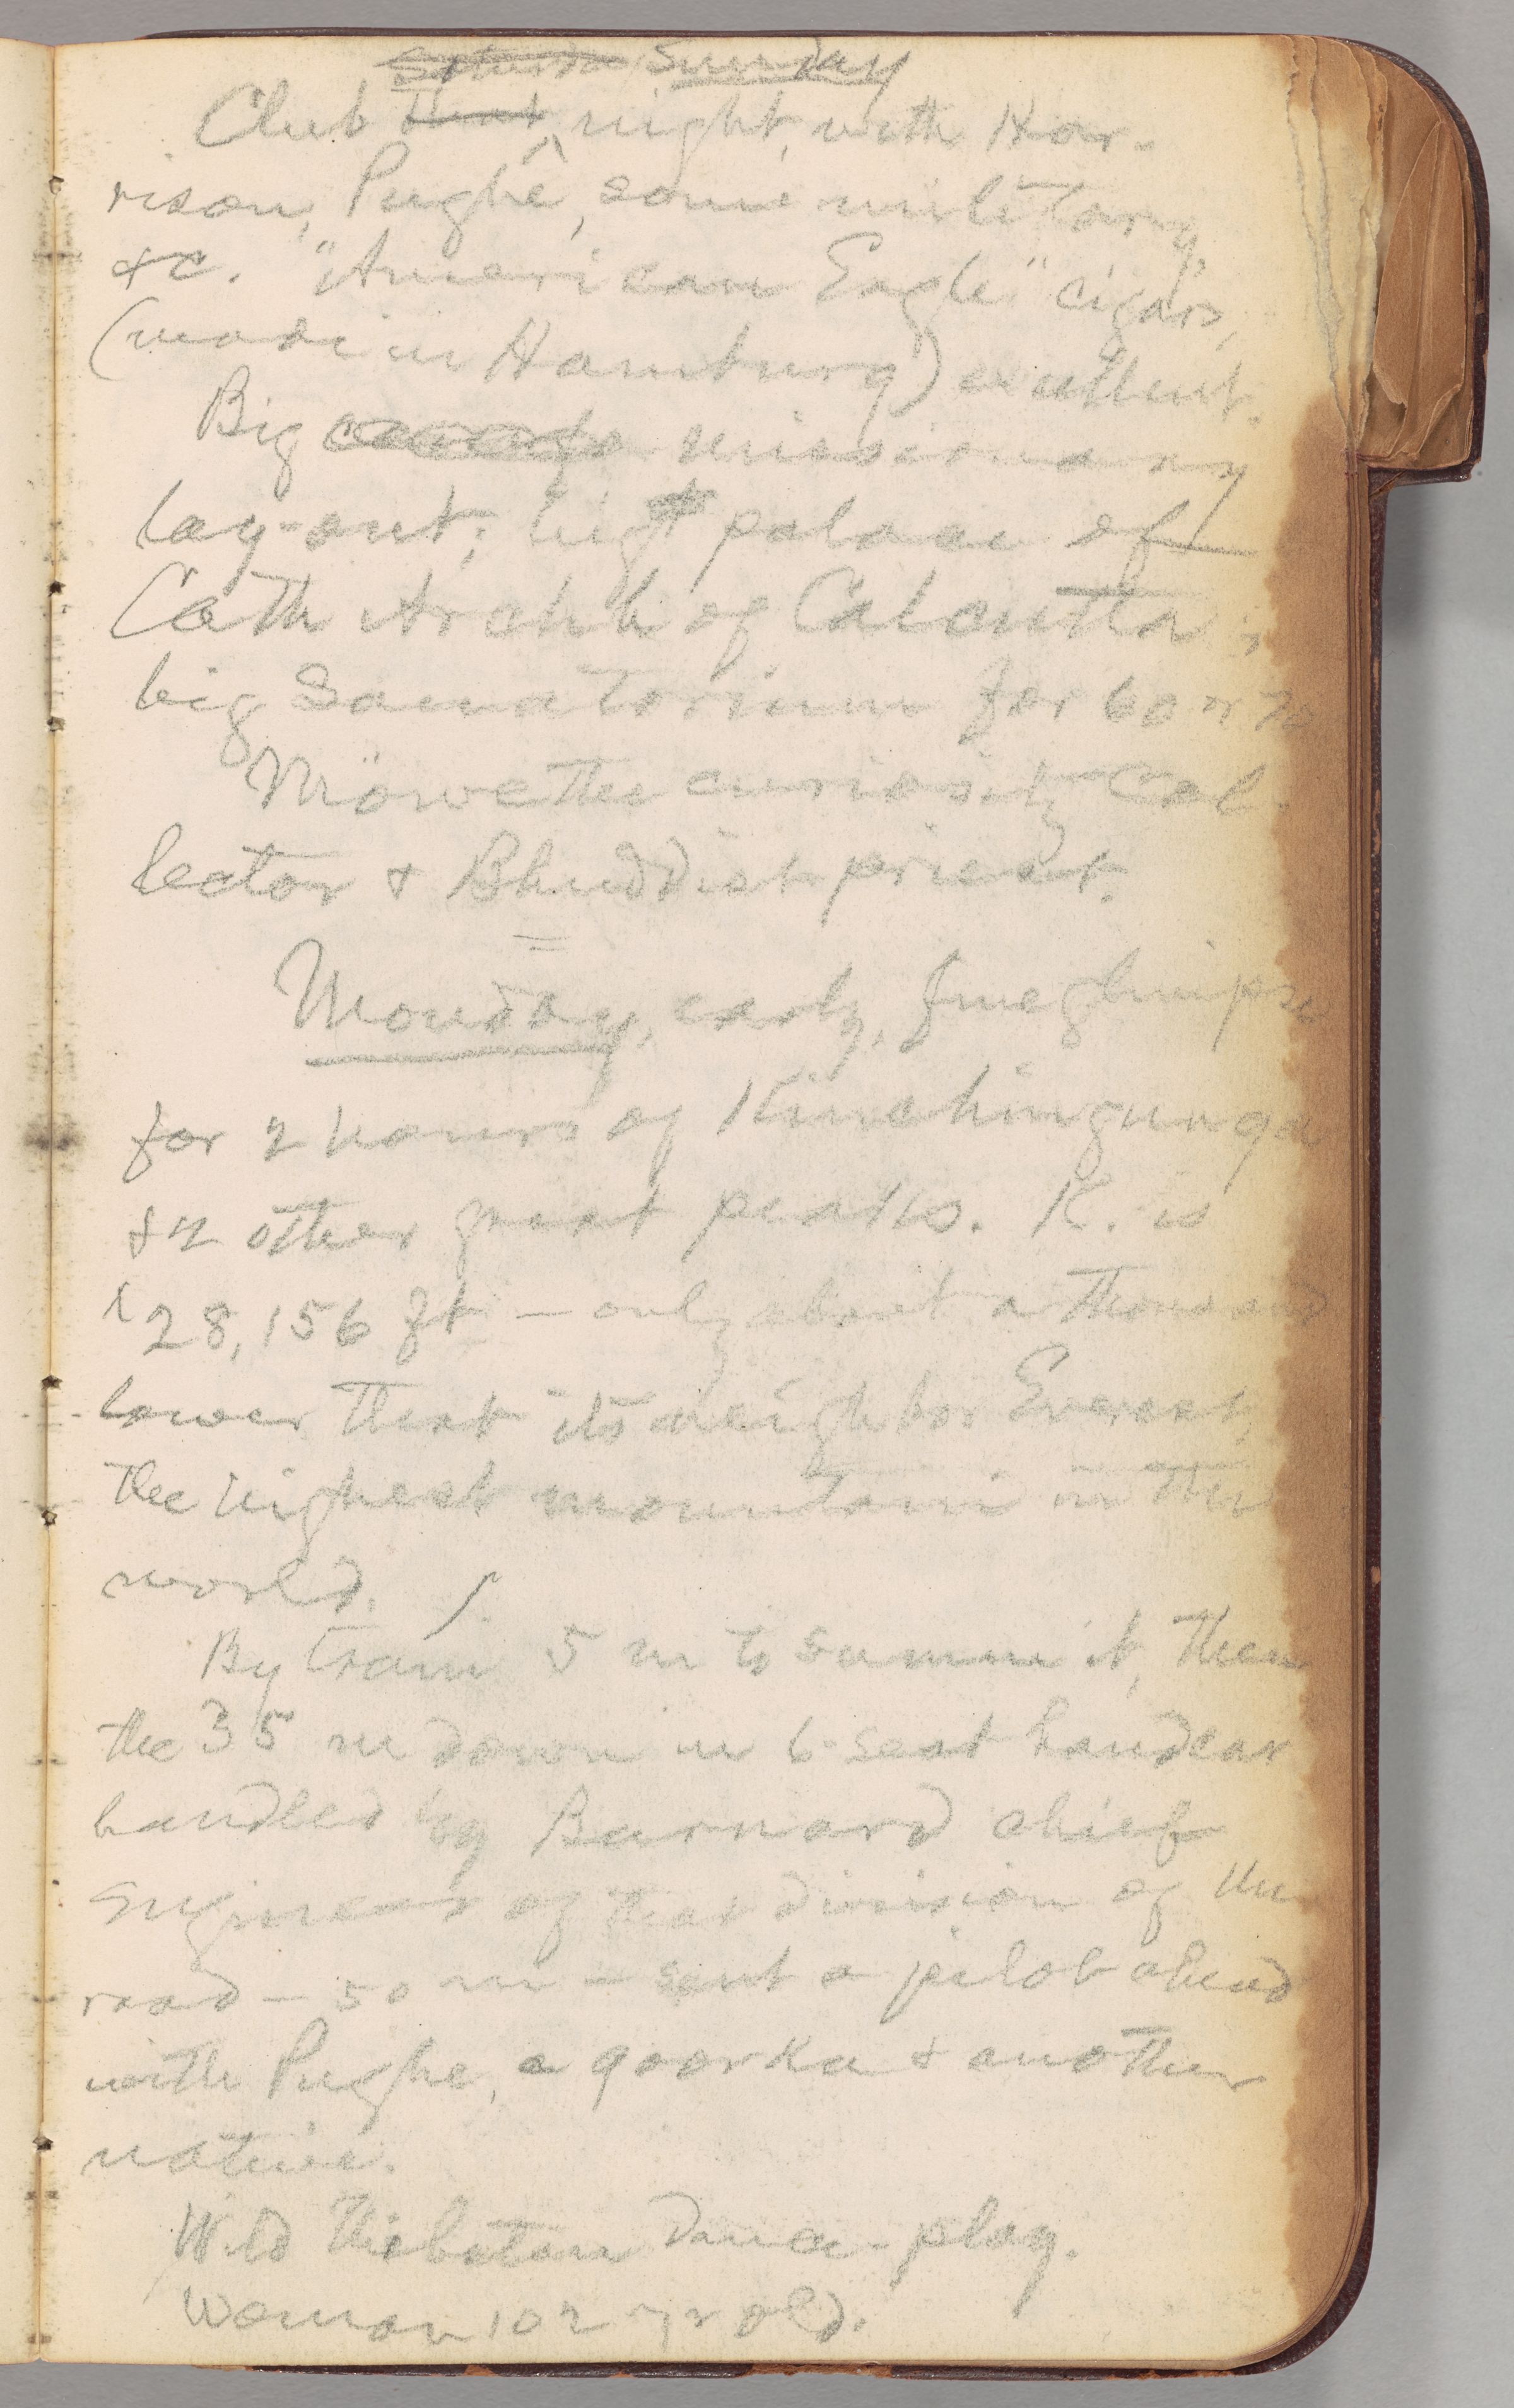 Saturda Sunday
Club that night, with Har-
rison, Pughe, some military,
&c. "American Eagle" cigars,
(made in Hamburg) excellent.
Big missionary
lay-out; big palace of
Cath Archb of Calcutta;
big Sanatorium for 60 or 70
Möwe the curiosity col-
lector & Bhuddist priest.
=
Monday, early, fine glimpse
for 2 hours of Kinchingunga
& 2 other great peaks. K. is
28,156 ft — only about a thousand
lower that its neighbor Everest,
the highest mountain in the
world.
By train 5 m to summit, then
the 35 m down in 6-seat handcar
handled by Barnard chief
Engineer of that division of the
road — 50 m — sent a pilot ahead
with Pughe, a goorka & another
native.
Wild Thibetan dance-play.
Woman 102 yr old.